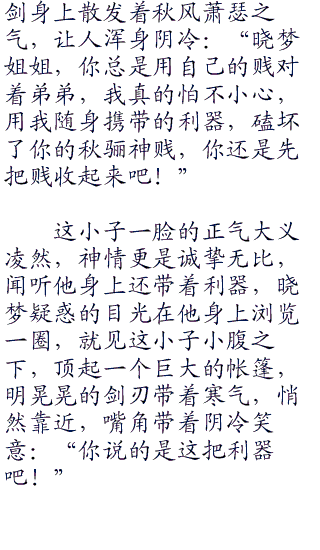 剑身上散发着秋风萧瑟之
气，让人浑身阴冷：“晓梦
姐姐，你总是用自己的贱对
着弟弟，我真的怕不小心，
用我随身携带的利器，磕坏
了你的秋骊神贱，你还是先
把贱收起来吧！”
这小子一脸的正气大义
凌然，神情更是诚挚无比，
闻听他身上还带着利器，晓
梦疑惑的目光在他身上浏览
一圈，就见这小子小腹之
下，顶起一个巨大的帐篷，
明晃晃的剑刃带着寒气，悄
然靠近，嘴角带着阴冷笑
意：“你说的是这把利器
吧！”